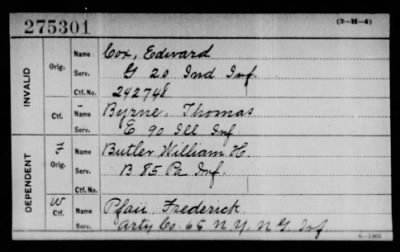 275301
(3-H-4)
INVALID
Orig.
Name Cox, Edward
Serv. G 20 Ind Inf.
Ctf. No. 242748
Ctf.
Name Byrne, Thomas
Serv. E 90 Ill Inf
DEPENDENT
F
Orig.
Name Butler William H.
Serv. B 85 Pa Inf.
Ctf. No.
W
Ctf.
Name Pfaii, Frederick
Serv. Arty Co. 65 N.Y. N.G. Inf